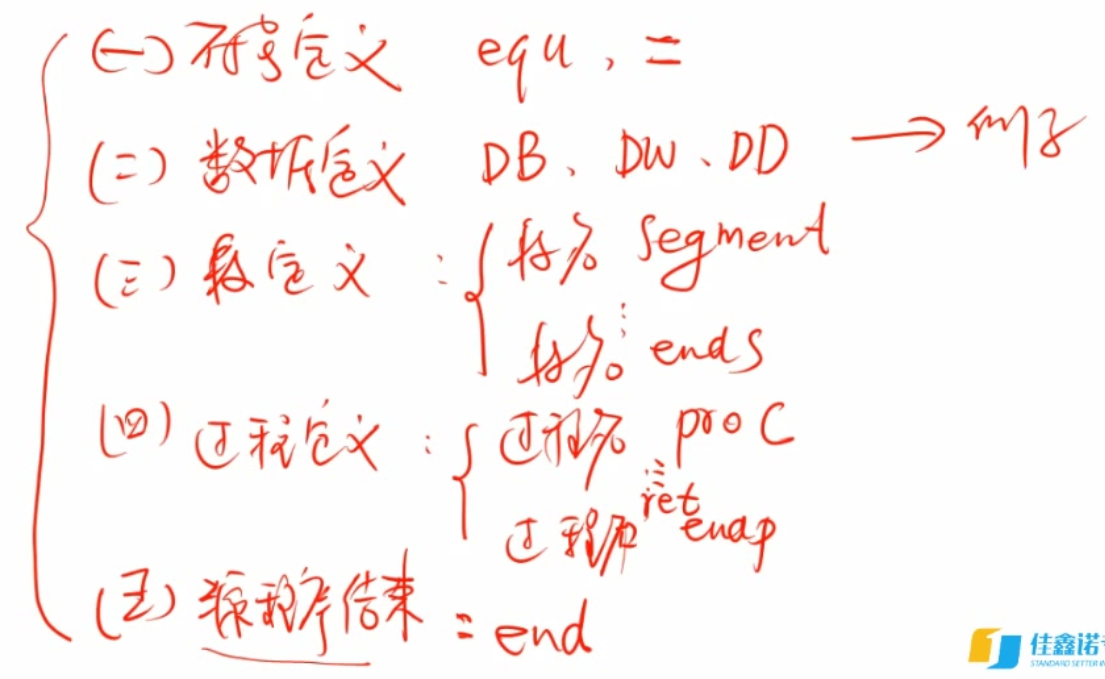 (一) 符号定义 equ、=
(二) 数据定义 DB、DW、DD → 例子
(三) 段定义 : 段名 segment
⋮
段名 ends
(四) 过程定义 : 过程名 proc
⋮
ret
过程名 endp
(五) 源程序结束 : end
佳鑫诺
STANDARD SETTER IN